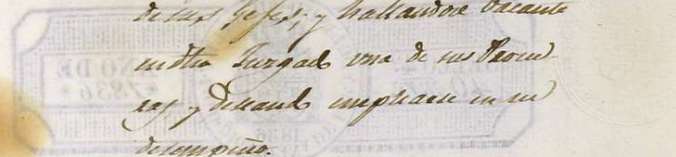 de sus Gefes; y hallandose vacante
en dho Juzgado una de sus Procu
ras y deseando emplearse en su
desempeño.